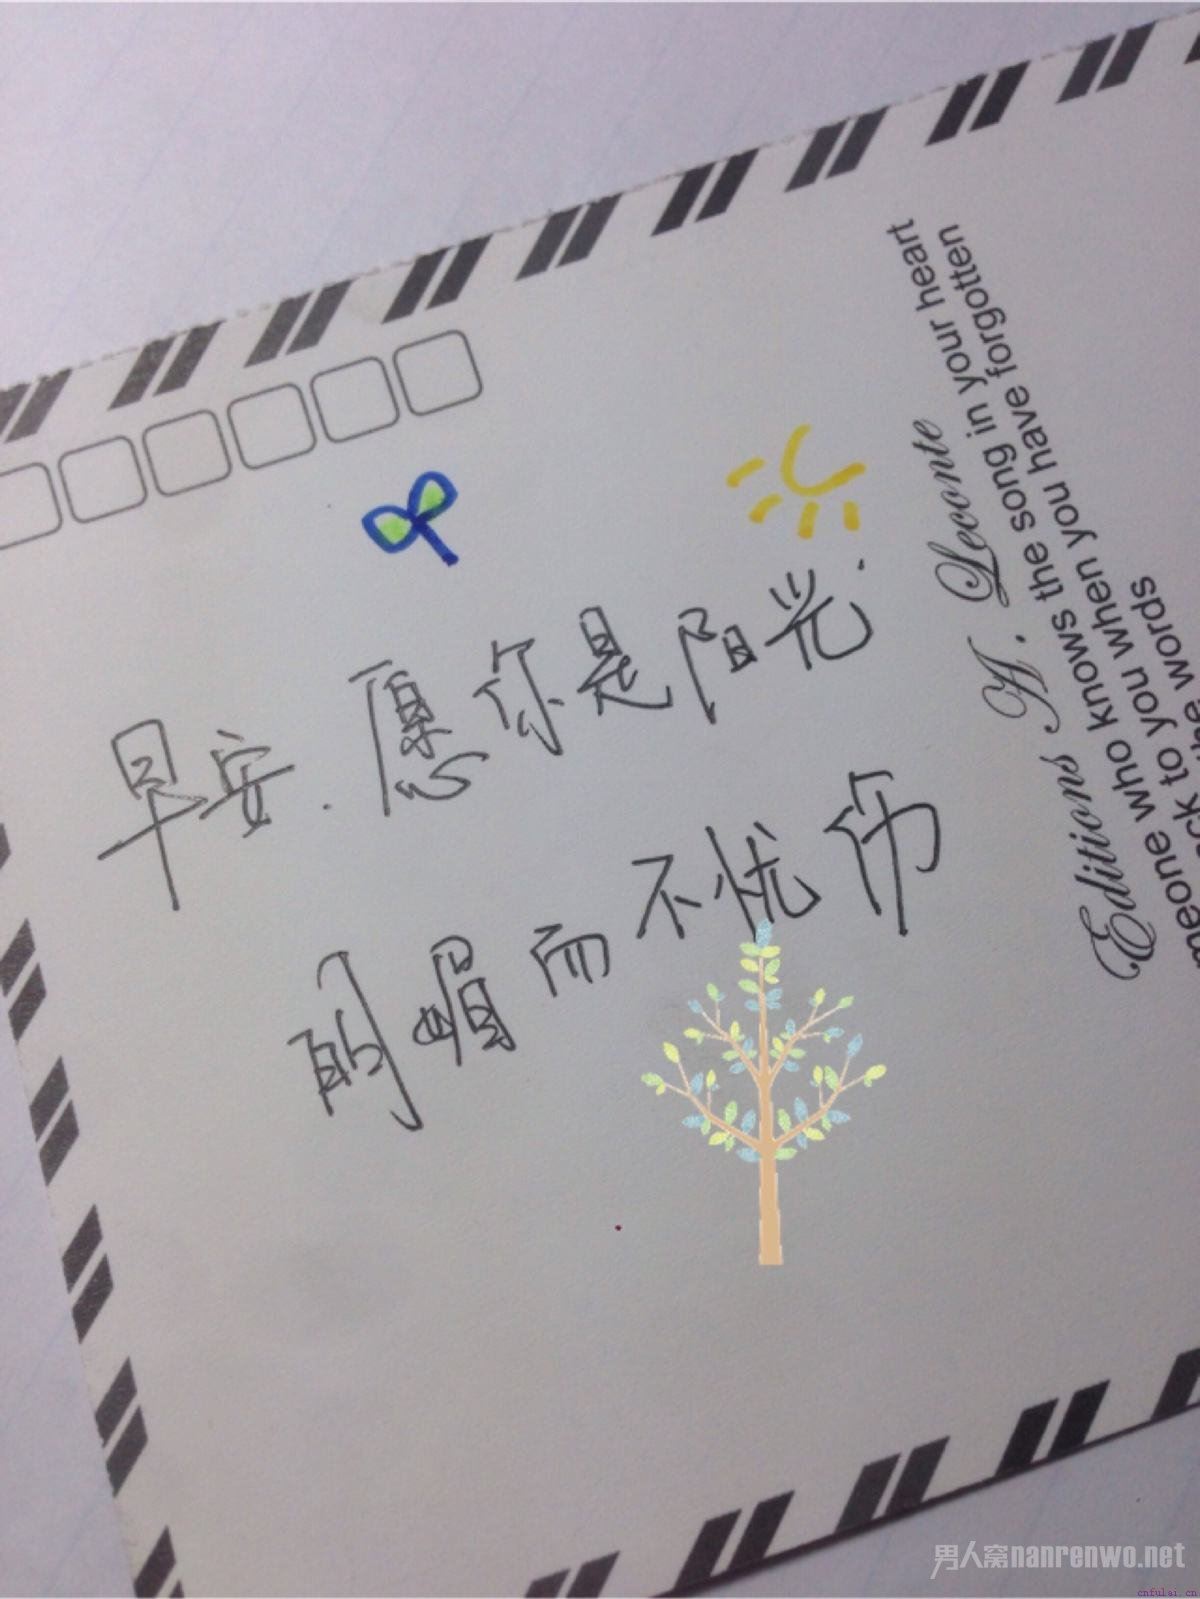 早安.愿你是阳光.
明媚而不忧伤
Editions A. Lecante
meone who knows the song in your heart
ck to you when you have forgotten
the words
男人窝nanrenwo.net
cnfulai.cn